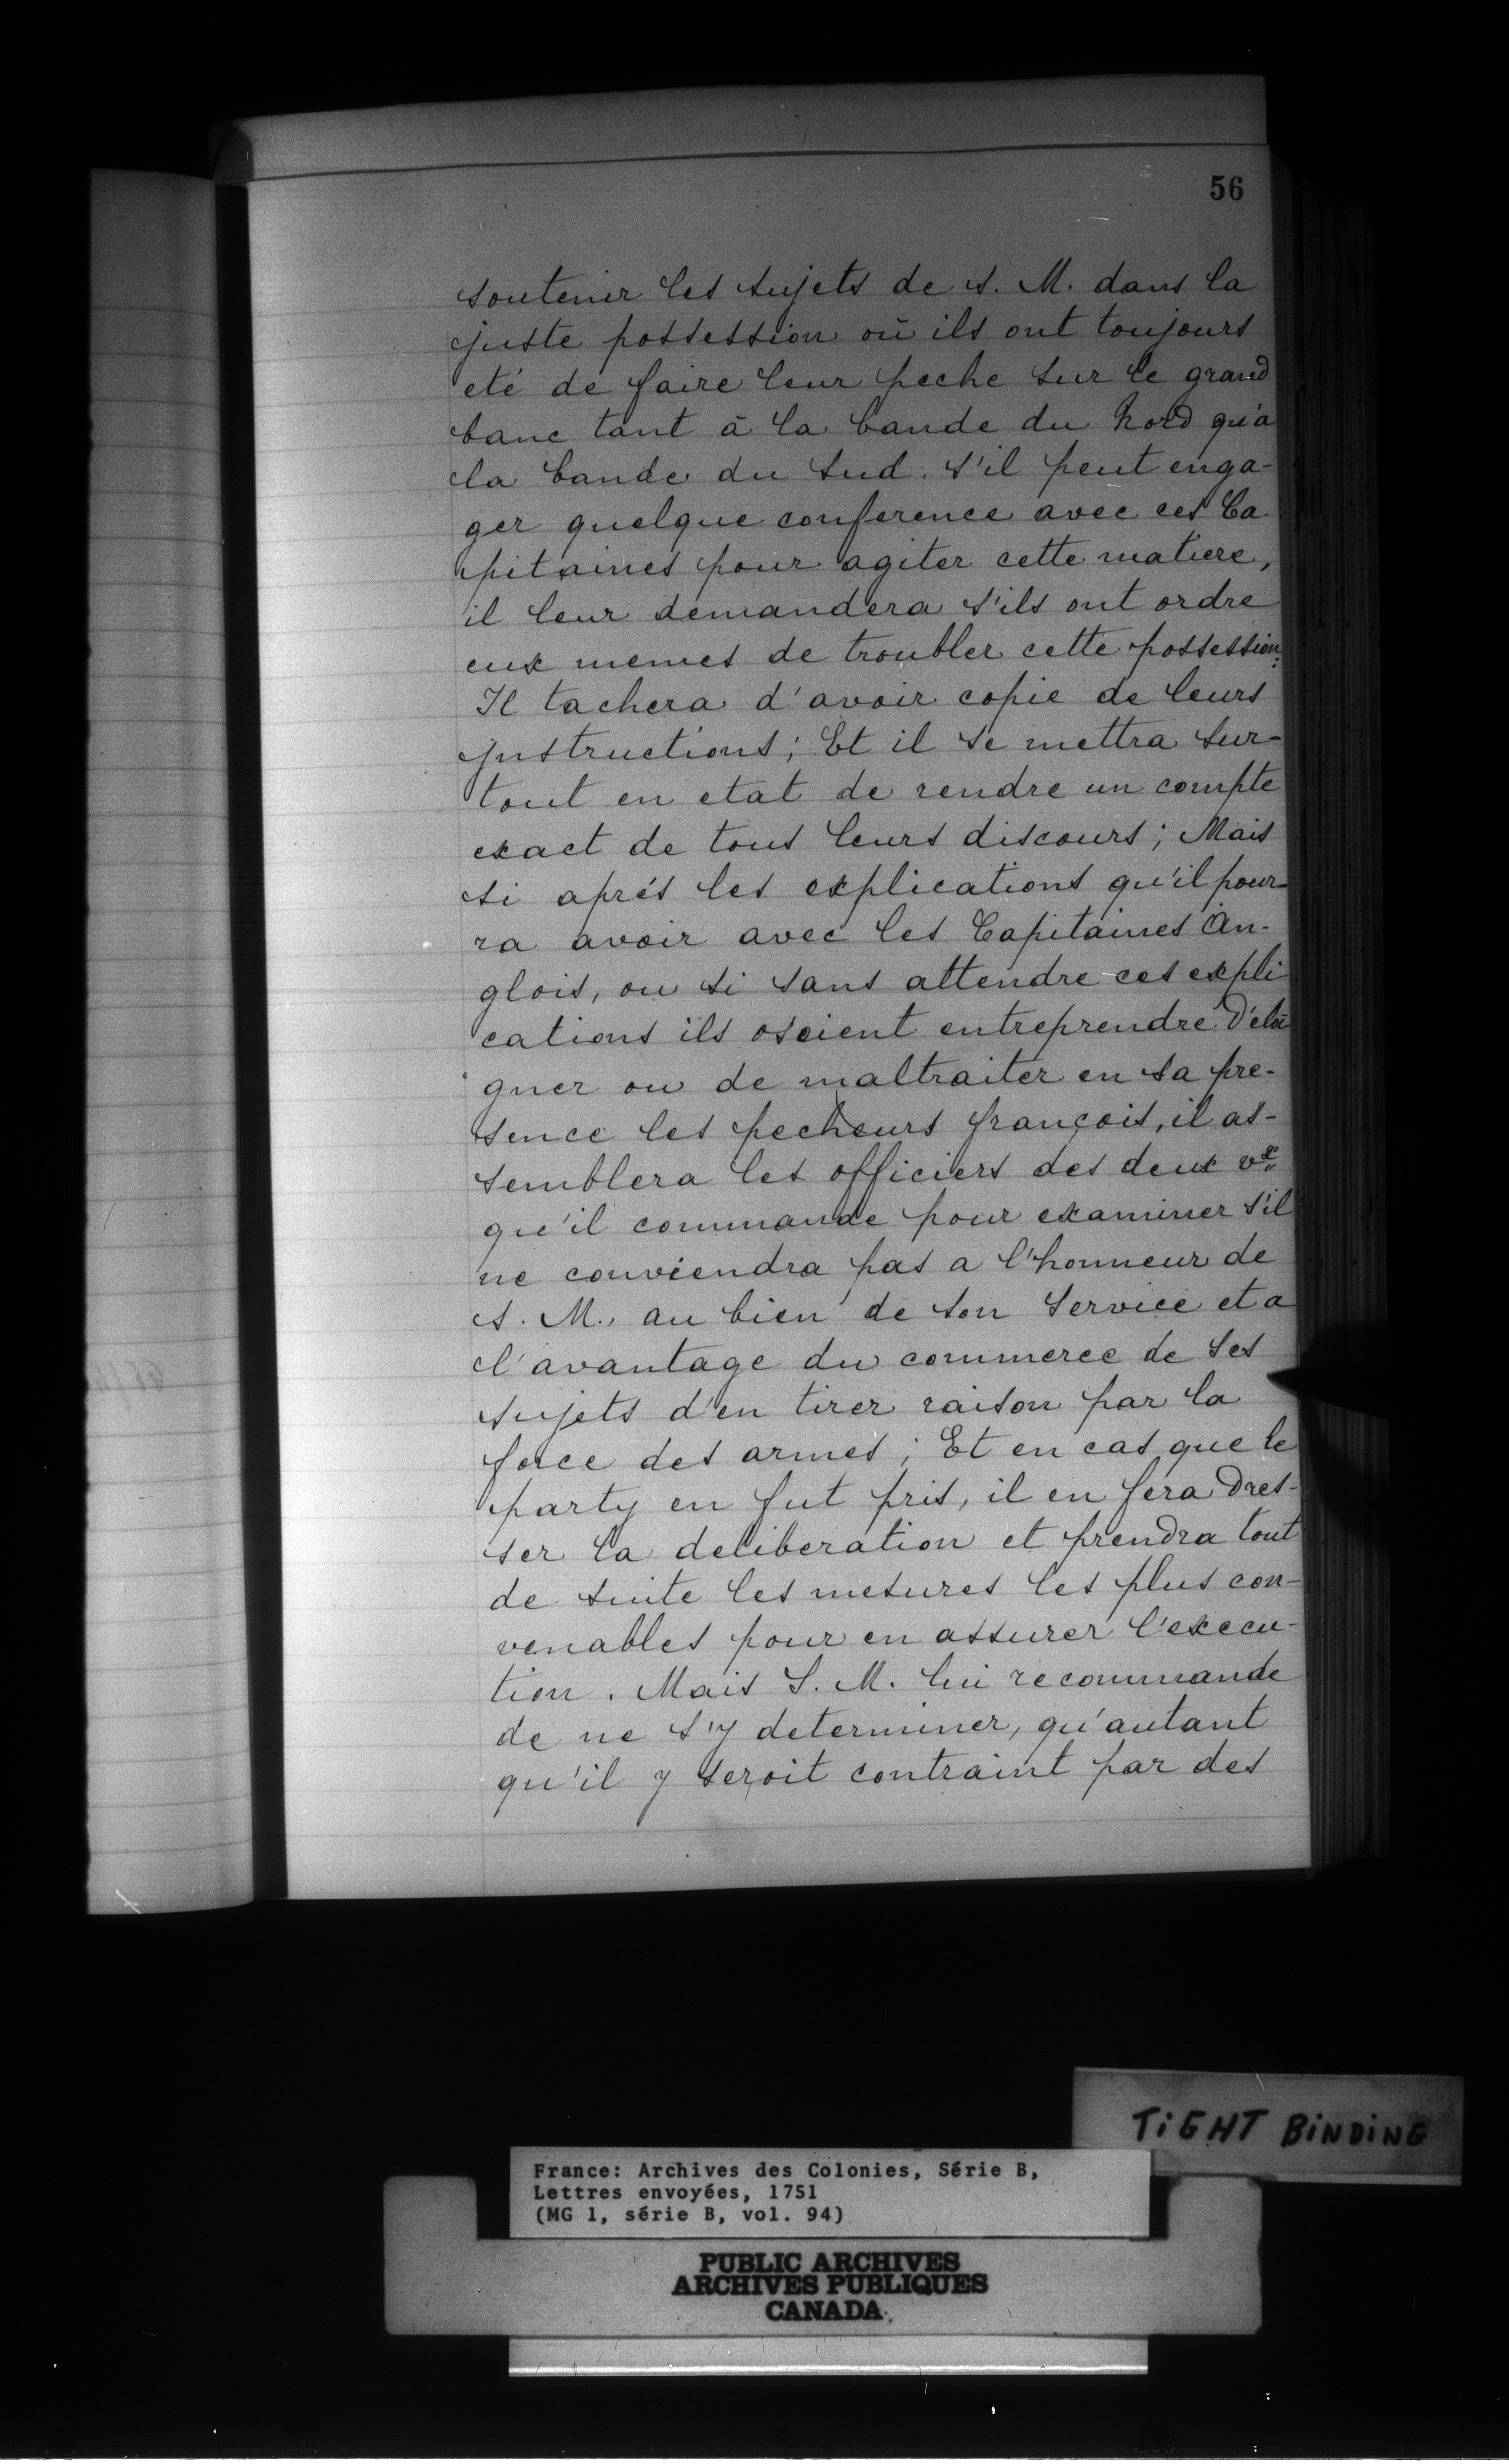 56
soutenir les sujets de S. M. dans la
juste possession où ils ont toujours
eté de faire leur peche sur le grand
banc tant à la bande du Nord qu'a
la bande du Sud. S'il peut enga-
ger quelque conference avec ces Ca
pitaines pour agiter cette matiere,
il leur demandera s'ils ont ordre
eux memes de troubler cette possession:
Il tachera d'avoir copie de leurs
Instructions; Et il se mettra sur-
tout en etat de rendre un compte
exact de tous leurs discours; Mais
si aprés les explications qu'il pour-
ra avoir avec les Capitaines An-
glois, ou si sans attendre ces expli
cations ils osoient entreprendre d'eloi
gner ou de maltraiter en sa pre-
sence les pecheurs françois, il as-
semblera les officiers des deux vx
qu'il commande pour examiner s'il
ne conviendra pas a l'honneur de
S. M., au bien de son service et a
l'avantage du commerce de ses
sujets d'en tirer raison par la
force des armes; Et en cas que le
party en fut pris, il en fera dres-
ser la deliberation et prendra tout
de suite les mesures les plus con-
venables pour en assurer l'execu-
tion. Mais S. M. lui recommande
de ne s'y determiner, qu'autant
qu'il y seroit contraint par des
TiGHT BiNDiNG
France: Archives des Colonies, Série B,
Lettres envoyées, 1751
(MG 1, série B, vol. 94)
PUBLIC ARCHIVES
ARCHIVES PUBLIQUES
CANADA